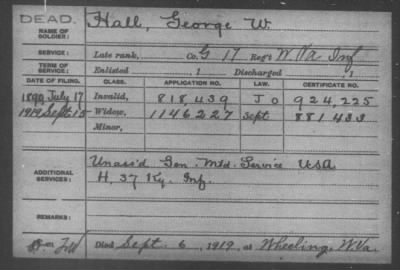 DEAD.
NAME OF SOLDIER: Hall, George W.
SERVICE: Late rank, Co. G 17 Reg't W. Va Inf
TERM OF SERVICE: Enlisted , 1 Discharged , 1
DATE OF FILING. CLASS. APPLICATION NO. LAW. CERTIFICATE NO.
1890 July 17 Invalid, 818,439 J O 924,225
1919 Sept 15 Widow, 1146227 Sept 881,433
Minor,
ADDITIONAL SERVICES: Unas'd Gen. Mtd. Service USA
H, 37 Ky. Inf.
REMARKS:
Died Sept. 6, 1919, at Wheeling, W.Va.